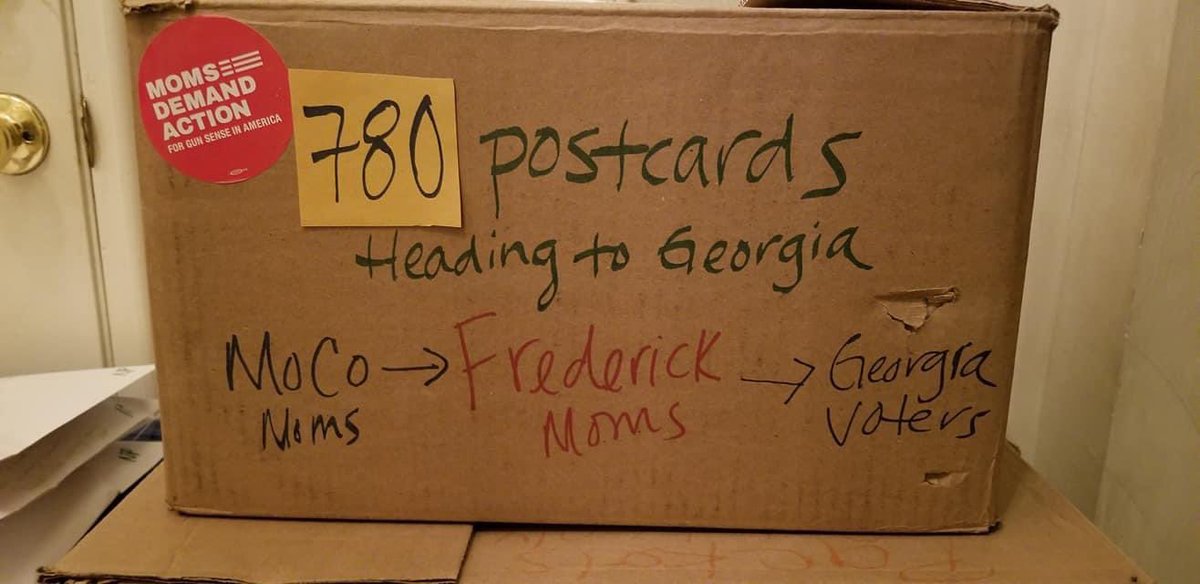 MOMS
DEMAND
ACTION
FOR GUN SENSE IN AMERICA
780 postcards
Heading to Georgia
MoCo → Frederick → Georgia
Moms Moms Voters